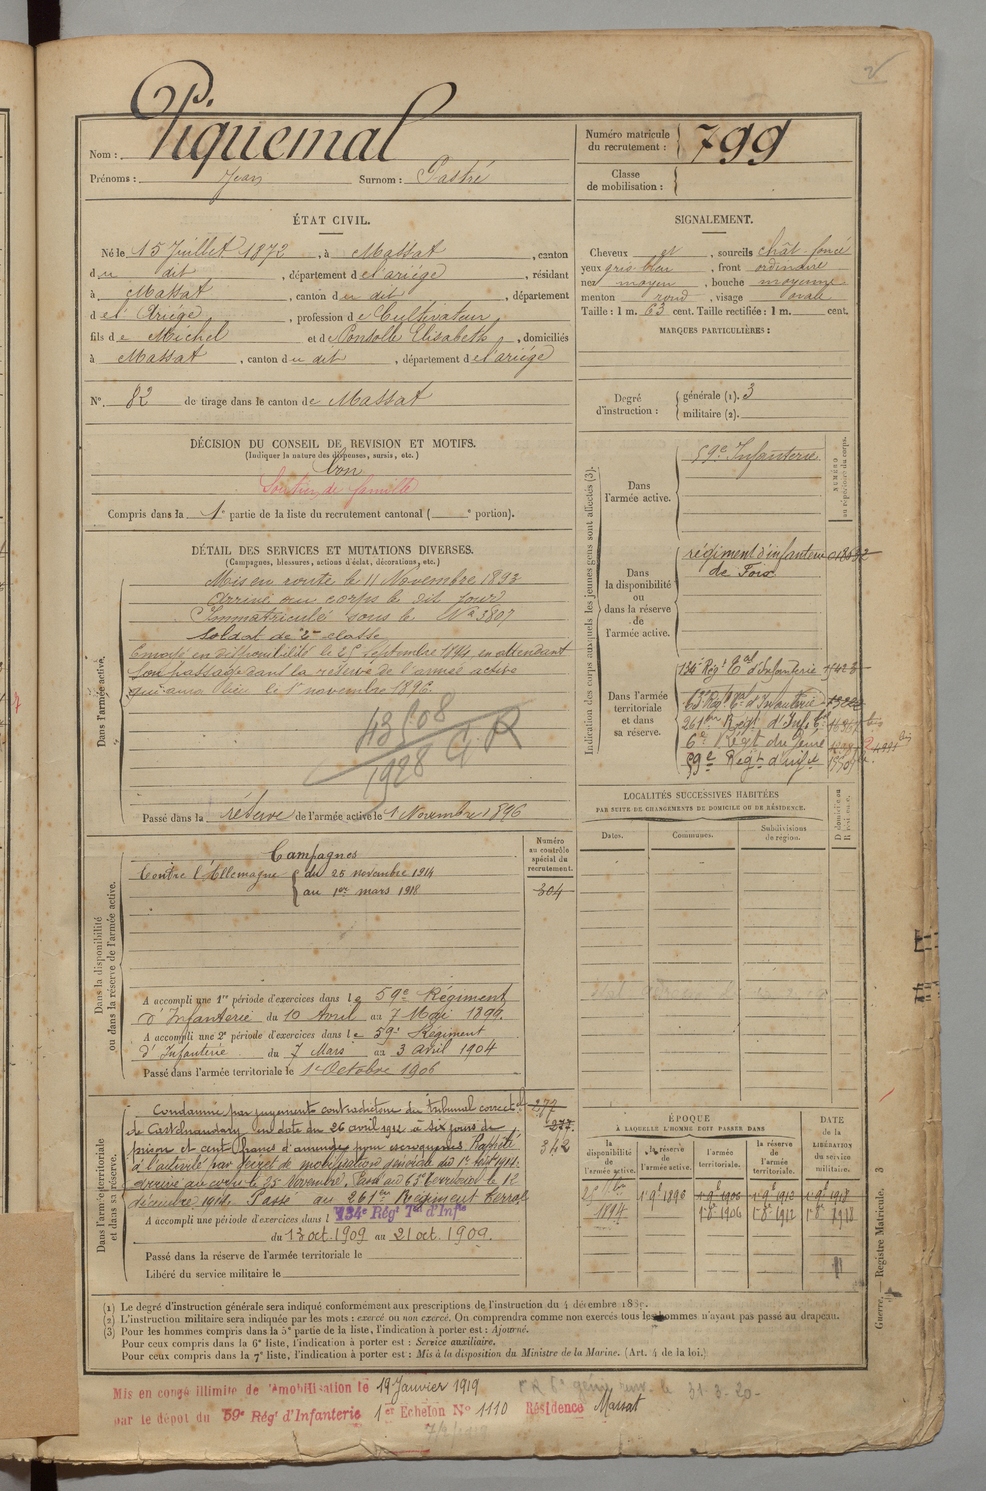 Nom : Piquemal
Prénoms : Jean Surnom : Gastré
Numéro matricule
du recrutement : 799
Classe
de mobilisation :
ÉTAT CIVIL.
Né le 15 Juillet 1872, à Massat, canton
du dit, département de l'ariége, résidant
à Massat, canton du dit, département
de l'Ariége, profession de Cultivateur
fils de Michel et de Ponsolle Elisabeth, domiciliés
à Massat, canton du dit, département de l'ariége
N° 82 de tirage dans le canton de Massat
SIGNALEMENT.
Cheveux et, sourcils chât. foncé
yeux gris bleu, front ordinaire
nez moyen, bouche moyenne
menton rond, visage ovale
Taille : 1 m. 63 cent. Taille rectifiée : 1 m. cent.
MARQUES PARTICULIÈRES :
Degré
d'instruction :
générale (1). 3
militaire (2).
DÉCISION DU CONSEIL DE REVISION ET MOTIFS.
(Indiquer la nature des dispenses, sursis, etc.)
bon
Soutien de famille
Compris dans la 1e partie de la liste du recrutement cantonal ( e portion).
DÉTAIL DES SERVICES ET MUTATIONS DIVERSES.
(Campagnes, blessures, actions d'éclat, décorations, etc.)
Dans l'armée active.
Mis en route le 11 Novembre 1893
Arrivé au corps le dit jour
Immatriculé sous le No 3807
Soldat de 2e classe
Envoyé en disponibilité le 25 septembre 1894 en attendant
son passage dans la réserve de l'armée active
qui aura lieu le 1er novembre 1896.
43508
1928 G.R
Passé dans la réserve de l'armée active le 1 Novembre 1896
Indication des corps auxquels les jeunes gens sont affectés (3).
NUMÉRO
au répertoire du corps.
Dans
l'armée active.
59e Infanterie
Dans
la disponibilité
ou
dans la réserve
de
l'armée active.
régiment d'infanterie
de Foix
Dans l'armée
territoriale
et dans
sa réserve.
134e Régt Tal d'Infanterie
65 Régt Tal d'Infanterie
261em Régt d'Infie
6e Régt du Génie
59e Regt d'infie
LOCALITÉS SUCCESSIVES HABITÉES
PAR SUITE DE CHANGEMENTS DE DOMICILE OU DE RÉSIDENCE.
Dates. Communes. Subdivisions
de région.
D domicile ou
R résidence.
Dans la disponibilité
ou dans la réserve de l'armée active.
Campagnes
Contre l'Allemagne du 25 novembre 1914
au 1er mars 1918
Numéro
au contrôle
spécial du
recrutement.
304
A accompli une 1re période d'exercices dans le 59e Régiment
d'Infanterie du 10 Avril au 7 Mai 1899.
A accompli une 2e période d'exercices dans le 59e Régiment
d'Infanterie du 7 Mars au 3 Avril 1904
Passé dans l'armée territoriale le 1er Octobre 1906
Dans l'armée territoriale
et dans sa réserve.
Condamné par jugement contradictoire du tribunal correctel
de Castelnaudary en date du 26 avril 1912 à six jours de
prison et cent francs d'amende pour escroqueries. Rappelé
à l'activité par décret de mobilisation générale du 1er Août 1914.
Arrivé au corps le 25 Novembre. Passé au 65e Territorial le 12
décembre 1914. Passé au 261em Régiment Terral
277
277.
342
A accompli une période d'exercices dans l 134e Régt Tal d'Infie
du 13 oct. 1909 au 21 oct. 1909.
Passé dans la réserve de l'armée territoriale le
Libéré du service militaire le
ÉPOQUE
À LAQUELLE L'HOMME DOIT PASSER DANS
DATE
de la
LIBÉRATION
du service
militaire.
la
disponibilité
de
l'armée active.
la réserve
de
l'armée active.
l'armée
territoriale.
la réserve
de
l'armée
territoriale.
25 7bre
1894 1er 9e 1896 1er 9e 1906 1er 9e 1912 1er 9e 1918
1er 8e 1906 1er 8e 1912 1er 8e 1918
(1) Le degré d'instruction générale sera indiqué conformément aux prescriptions de l'instruction du 4 décembre 1889.
(2) L'instruction militaire sera indiquée par les mots : exercé ou non exercé. On comprendra comme non exercés tous les hommes n'ayant pas passé au drapeau.
(3) Pour les hommes compris dans la 5e partie de la liste, l'indication à porter est : Ajourné.
Pour ceux compris dans la 6e liste, l'indication à porter est : Service auxiliaire.
Pour ceux compris dans la 7e liste, l'indication à porter est : Mis à la disposition du Ministre de la Marine. (Art. 4 de la loi.)
Guerre. — Registre Matricule. 3
Mis en congé illimité de démobilisation le 19 Janvier 1919
par le dépôt du 59e Régt d'Infanterie 1er Echelon No 1110 Résidence Massat